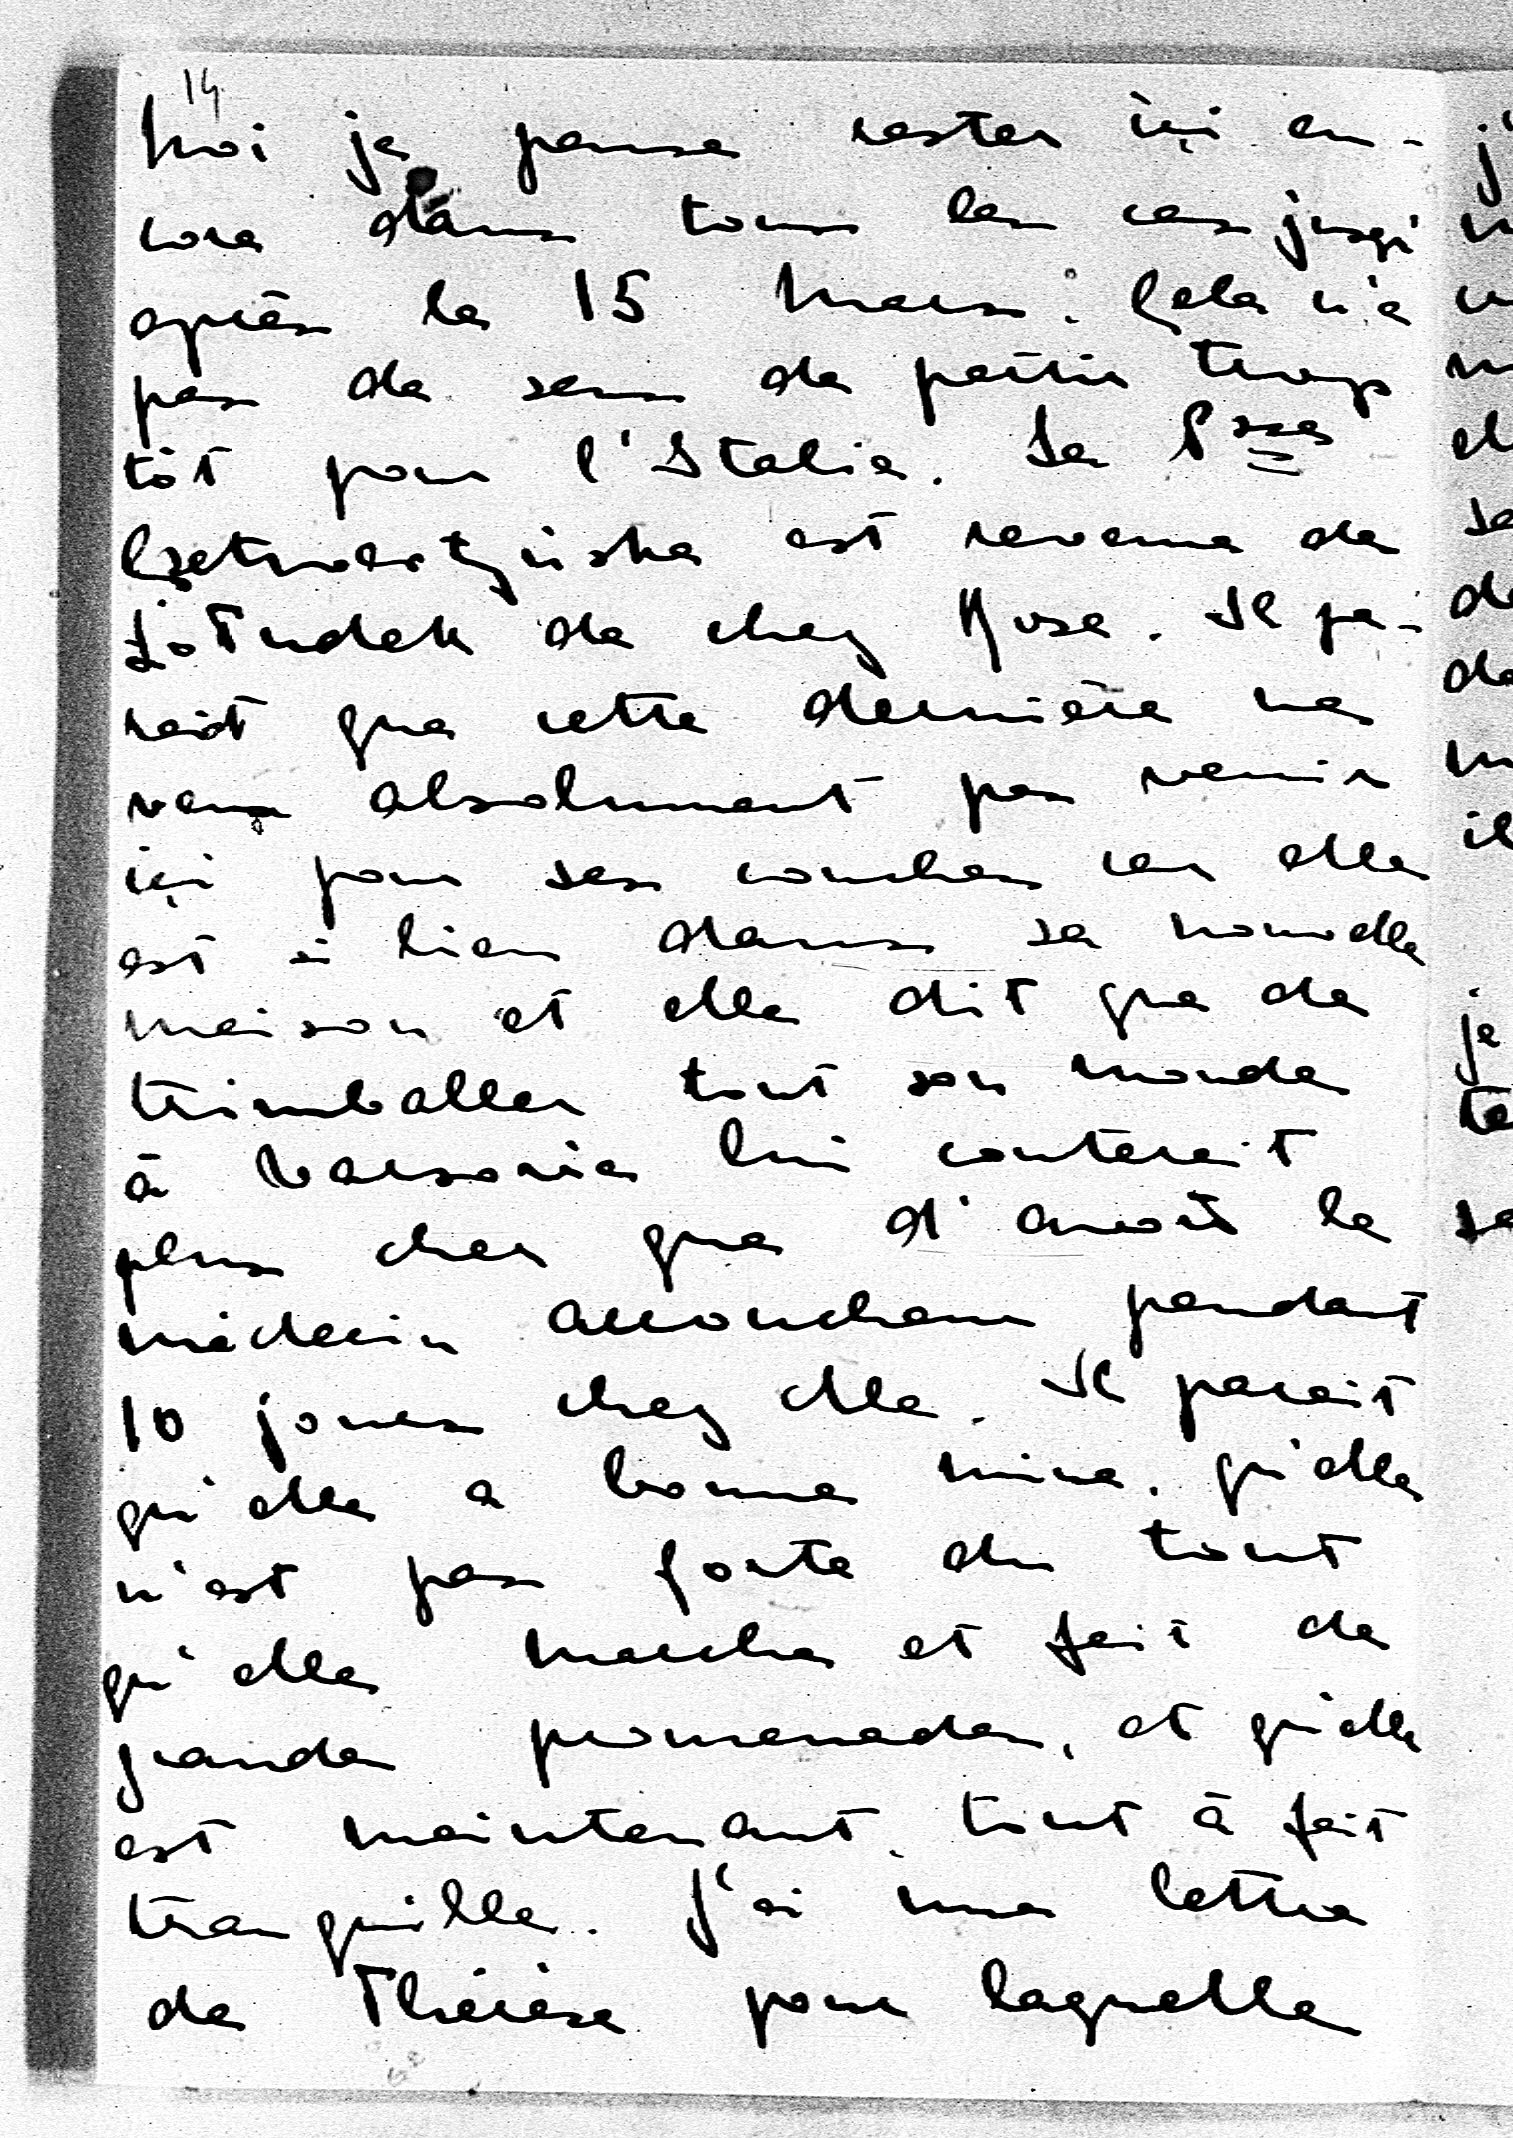 14
Moi je pense rester ici en-
core dans tous les cas jusqu'
après le 15 Mars. Cela n'a
pas de sens de partir trop
tôt pour l'Italie. La Psse
Czetwertyńska est revenue de
Żołudek de chez Rose. Il pa-
rait que cette dernière ne
veux absolument pas venir
ici pour ses couches car elle
est si bien dans sa nouvelle
maison et elle dit que de
trimballer tout son monde
à Varsovie lui couterait
plus cher que d'avoir le
médecin accoucheur pendant
10 jours chez elle. Il parait
qu'elle a bonne mine. qu'elle
n'est pas forte du tout
qu'elle marche et fait de
grandes promenades, et qu'elle
est maintenant tout à fait
tranquille. J'ai une lettre
de Thérèse pour laquelle